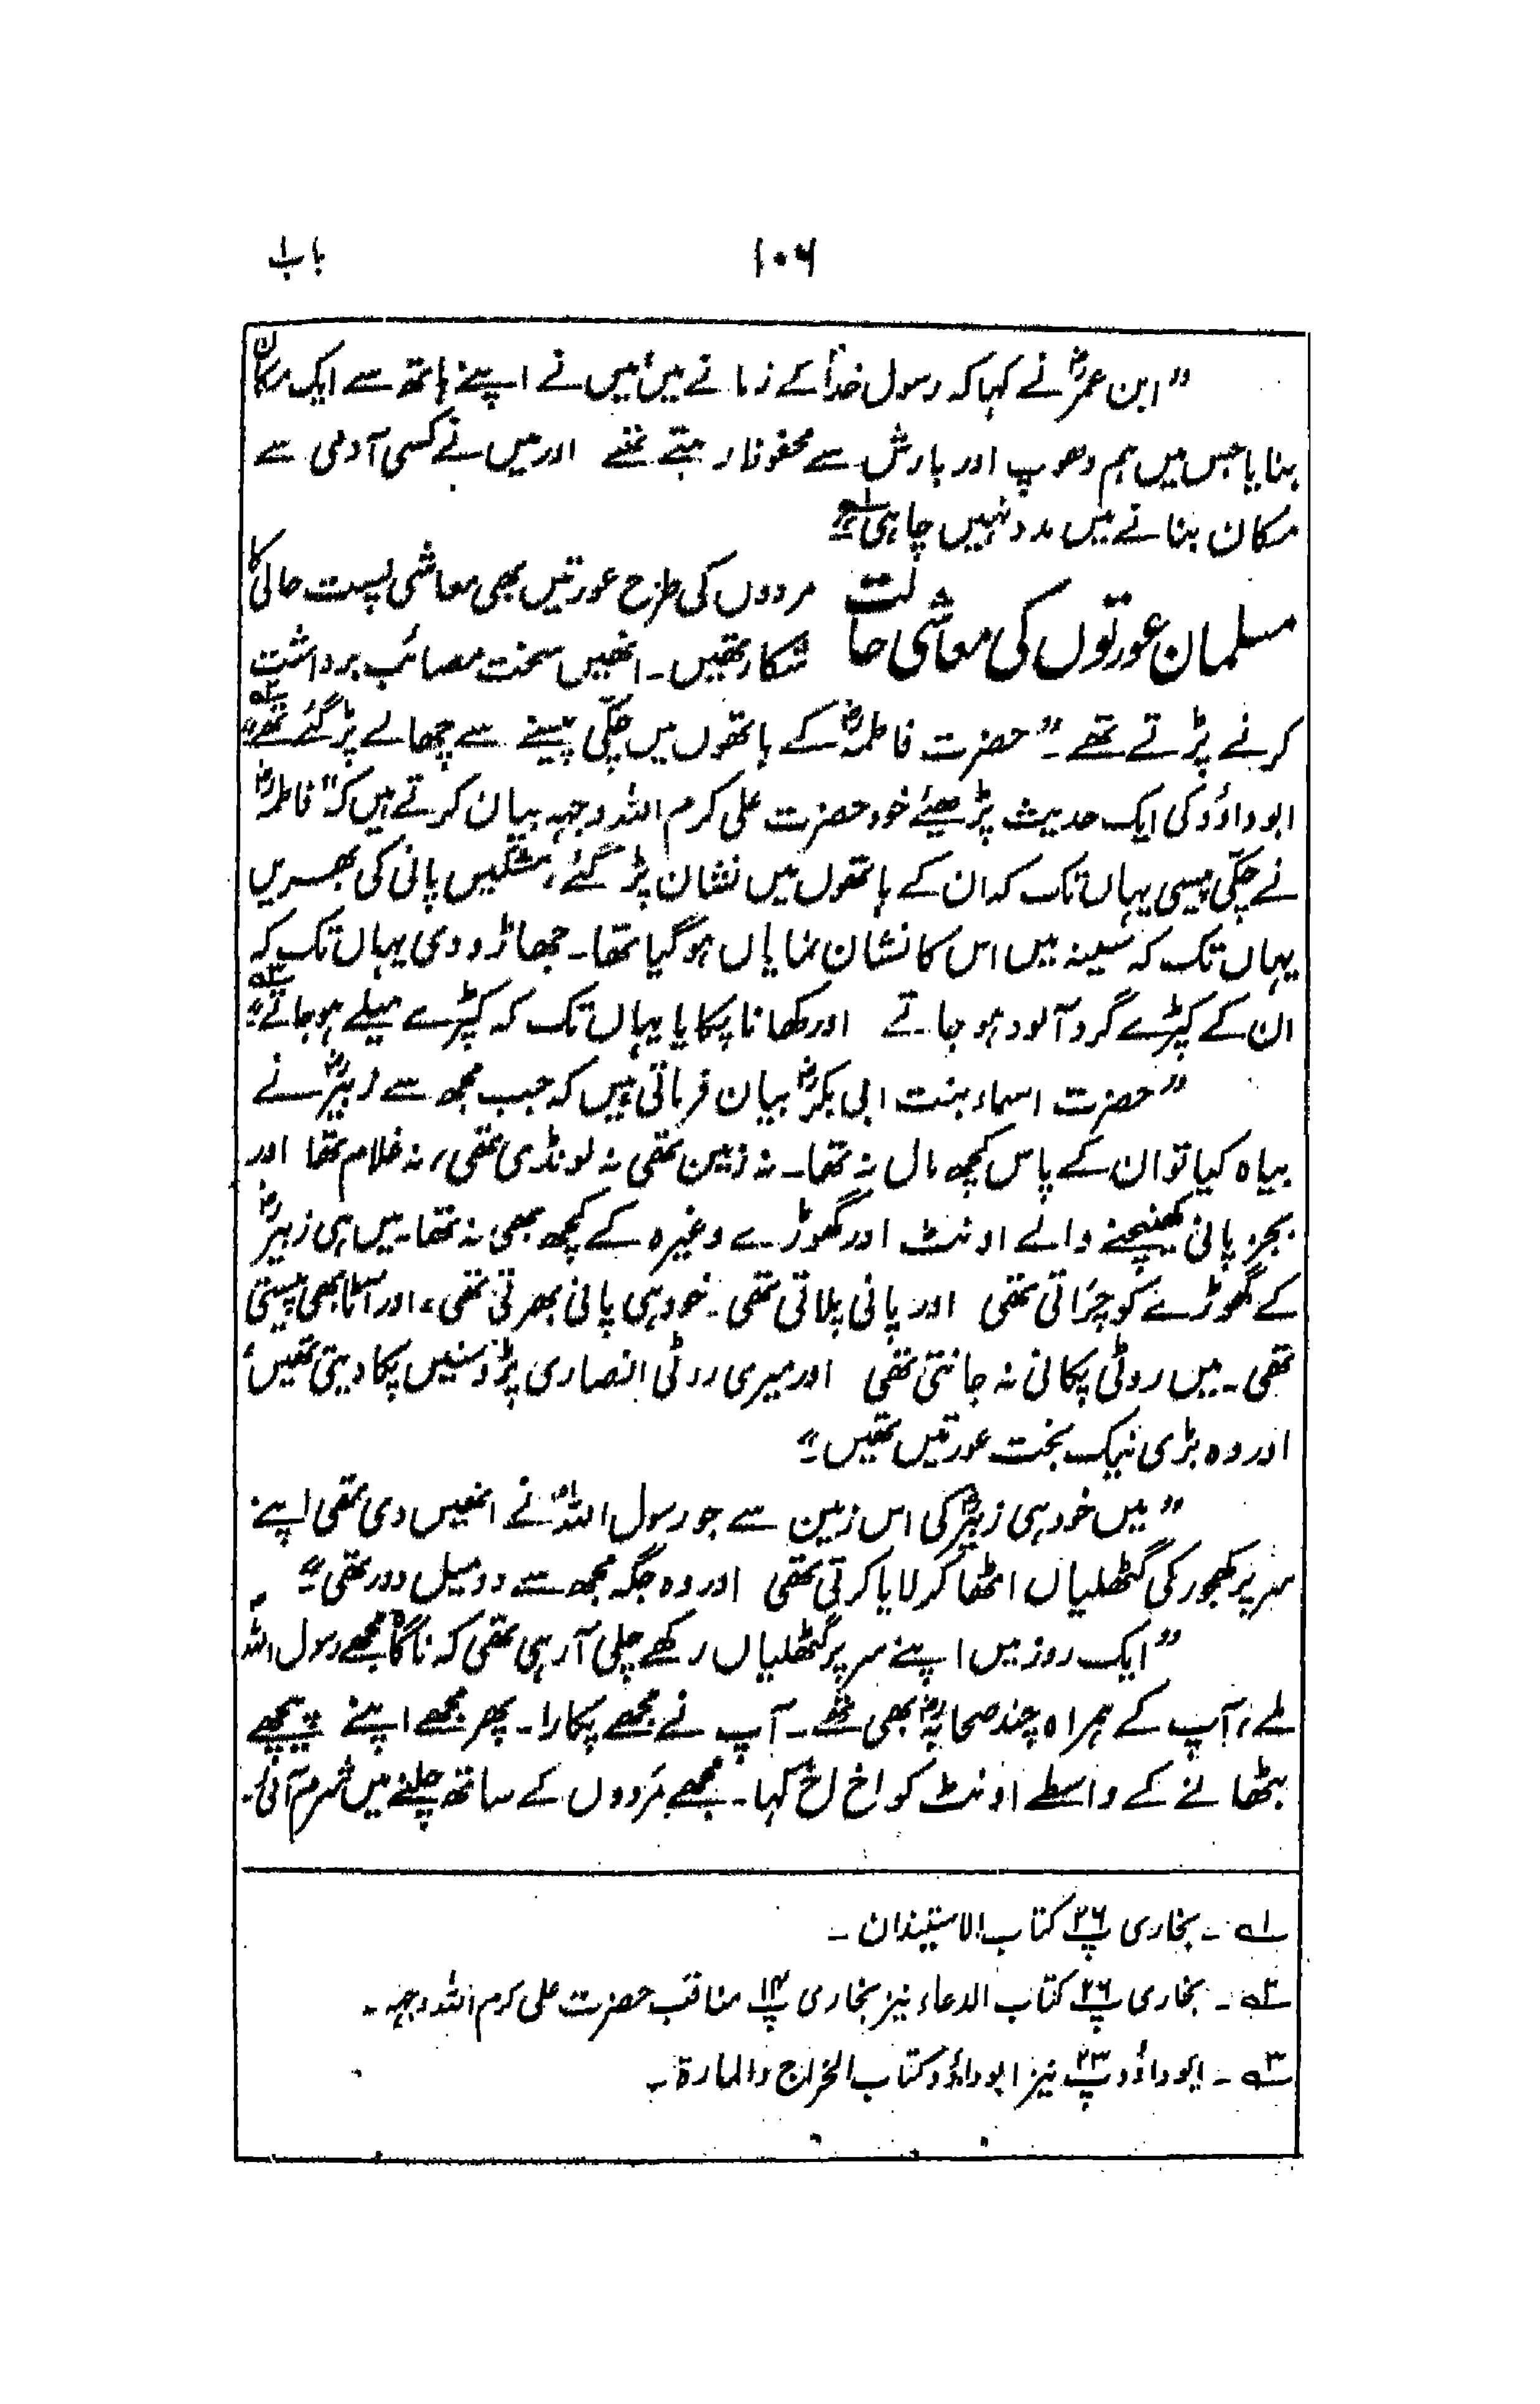 باب ۱
۱۰۶
”ابن عمرؓ نے کہا کہ رسول خداؐ کے زمانے میں، میں نے اپنے ہاتھ سے ایک مکان
بنایا جس میں ہم دھوپ اور بارش سے محفوظ رہتے تھے اور میں نے کسی آدمی سے
مکان بنانے میں مدد نہیں چاہی“ ۱؎
مسلمان عورتوں کی معاشی حالت
مردوں کی طرح عورتیں بھی معاشی پست حالی کا
شکار تھیں۔ انھیں سخت مصائب برداشت
کرنے پڑتے تھے۔ ”حضرت فاطمہؓ کے ہاتھوں میں چکّی پیسنے سے چھالے پڑ گئے تھے“ ۲؎
ابو داؤد کی ایک حدیث پڑھیئے خود حضرت علی کرم اللہ وجہہ بیان کرتے ہیں کہ ”فاطمہؓ
نے چکّی پیسی یہاں تک کہ ان کے ہاتھوں میں نشان پڑ گئے، مشکیں پانی کی بھریں
یہاں تک کہ سینہ میں اس کا نشان نمایاں ہو گیا تھا۔ جھاڑو دی یہاں تک کہ
ان کے کپڑے گرد آلود ہو جاتے اور کھانا پکایا یہاں تک کہ کپڑے میلے ہو جاتے“ ۳؎
”حضرت اسماء بنت ابی بکرؓ بیان فرماتی ہیں کہ جب مجھ سے زبیرؓ نے
بیاہ کیا تو ان کے پاس کچھ مال نہ تھا۔ نہ زمین تھی نہ لونڈی تھی، نہ غلام تھا اور
بجز پانی کھینچنے والے اونٹ اور گھوڑے وغیرہ کے کچھ بھی نہ تھا۔ میں ہی زبیرؓ
کے گھوڑے کو چَراتی تھی اور پانی پلاتی تھی۔ خود ہی پانی بھرتی تھی، اور آٹا بھی پیستی
تھی۔ میں روٹی پکانی نہ جانتی تھی اور میری روٹی انصاری پڑوسنیں پکا دیتی تھیں،
اور وہ بڑی نیک بخت عورتیں تھیں“
”میں خود ہی زبیرؓ کی اس زمین سے جو رسول اللہؐ نے انھیں دی تھی اپنے
سر پر کھجور کی گٹھلیاں اٹھا کر لایا کرتی تھی اور وہ جگہ مجھ سے دو میل دور تھی“
”ایک روز میں اپنے سر پر گٹھلیاں رکھے چلی آرہی تھی کہ ناگاہ مجھے رسول اللہؐ
ملے، آپ کے ہمراہ چند صحابہؓ بھی تھے۔ آپ نے مجھے پکارا۔ پھر مجھے اپنے پیچھے
بٹھانے کے واسطے اونٹ کو اخ اخ کہا۔ مجھے مَردوں کے ساتھ چلنے میں شرم آئی۔
۱؎ ۔ بخاری پ ۲۶ کتاب الاستیذان ۔
۲؎ ۔ بخاری پ ۲۶ کتاب الدعاء نیز بخاری پ ۱۴ مناقب حضرت علی کرم اللہ وجہہ ۔
۳؎ ۔ ابو داؤد پ ۲۳ نیز ابو داؤد کتاب الخراج والمارۃ ۔